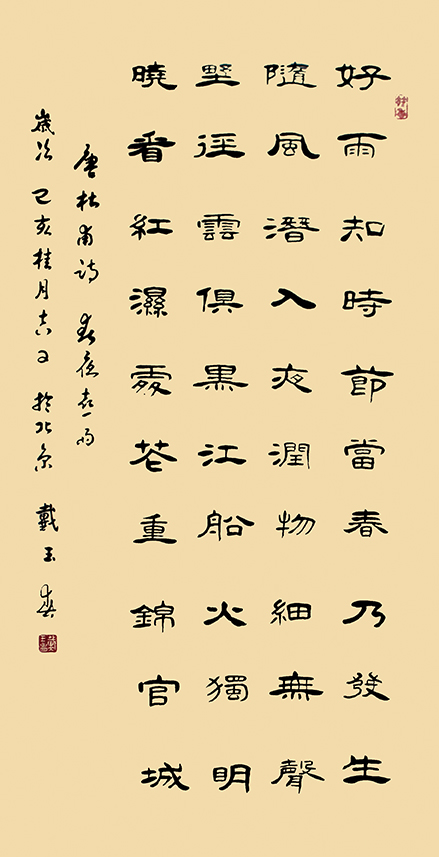 好雨知時節當春乃發生
隨風潛入夜潤物細無聲
野徑雲俱黑江船火獨明
曉看紅濕處花重錦官城
唐杜甫詩 春夜喜雨
歲次己亥桂月吉日於北京 戴玉典